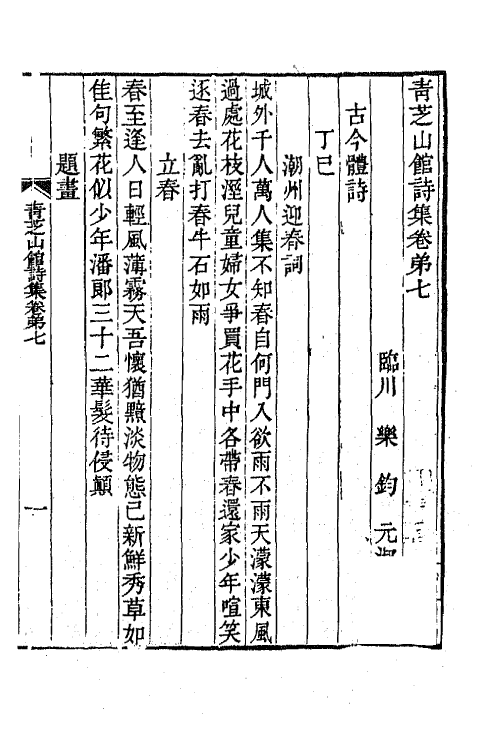 青芝山館詩集卷弟七
臨川 樂 鈞 元淑
古今體詩
丁巳
潮州迎春詞
城外千人萬人集不知春自何門入欲雨不雨天濛濛東風
過處花枝溼兒童婦女爭買花手中各帶春還家少年喧笑
逐春去亂打春牛石如雨
立春
春至逢人日輕風薄霧天吾懷猶黯淡物態已新鮮秀草如
佳句繁花似少年潘郎三十二華髮待侵顛
題畫
青芝山館詩集卷弟七
一